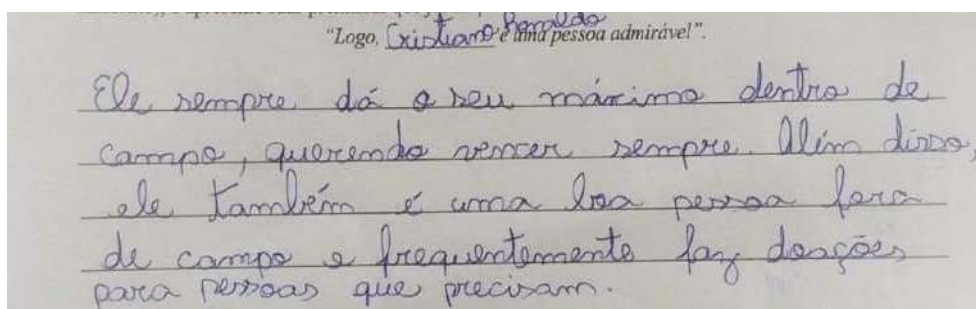 "Logo, Cristiano Ronaldo é uma pessoa admirável".
Ele sempre dá o seu máximo dentro de
campo, querendo vencer sempre. Além disso,
ele também é uma boa pessoa fora
de campo e frequentemente faz doações
para pessoas que precisam.